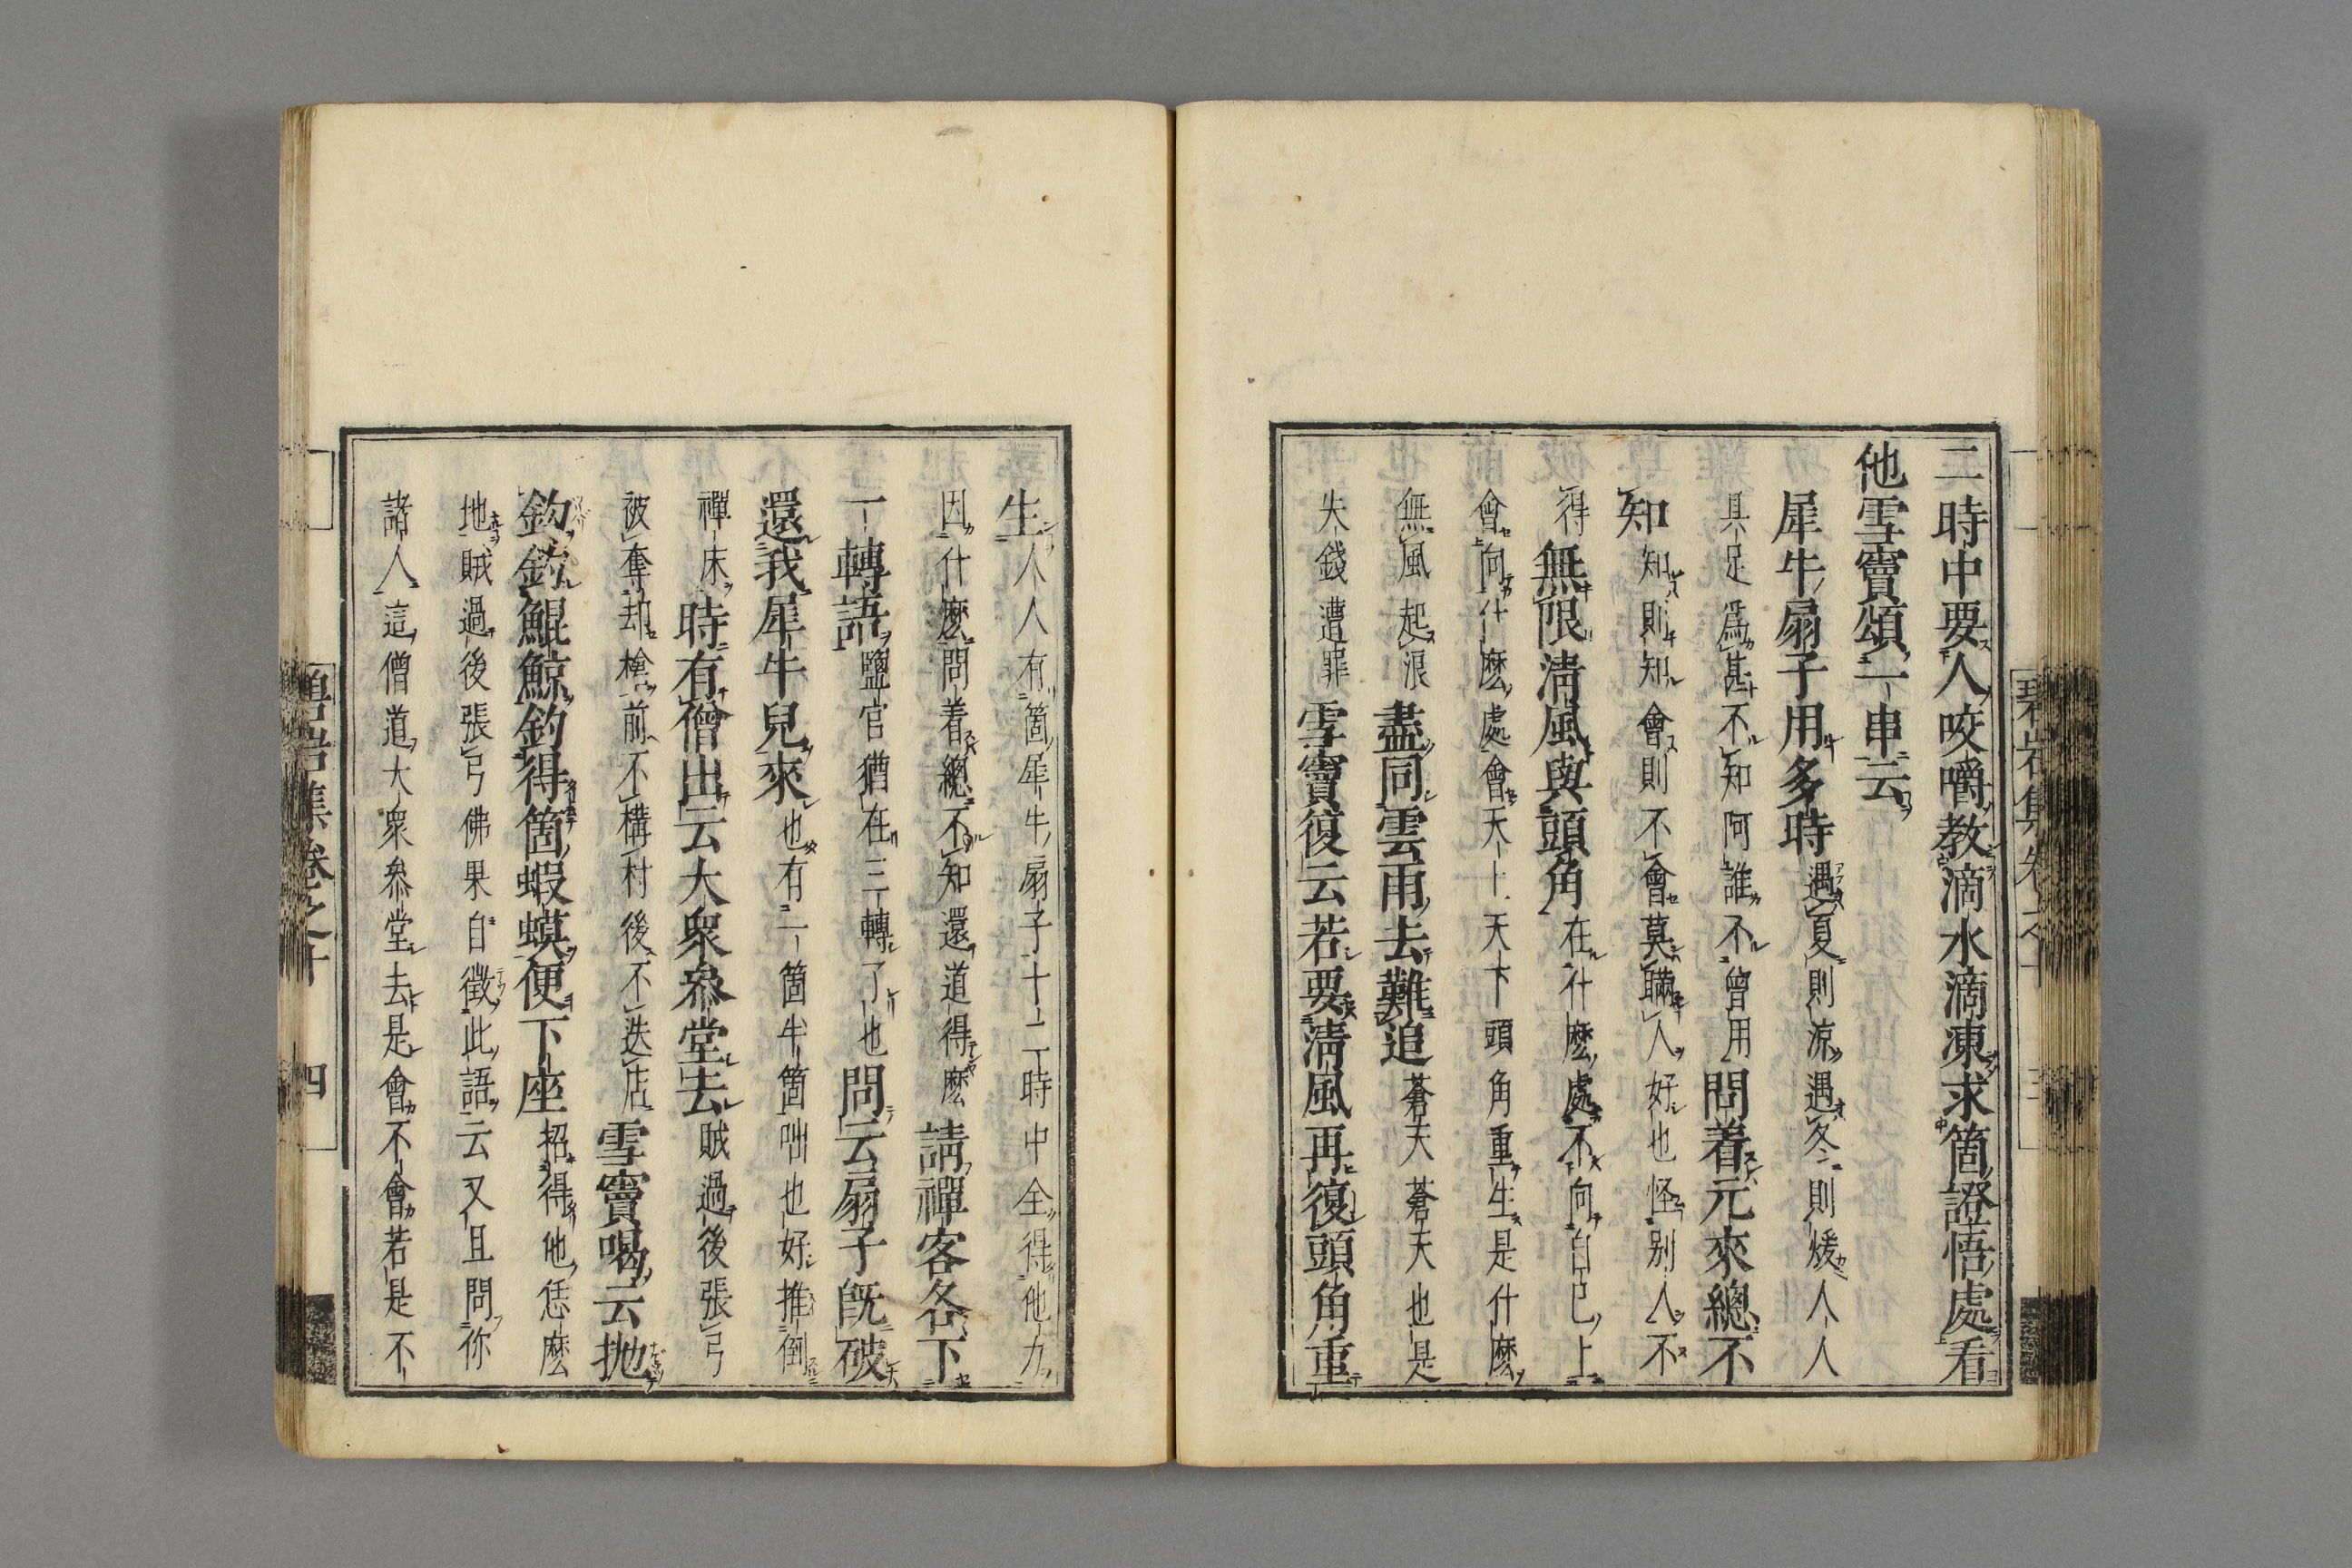 二時中要人咬嚼教滴水滴凍求箇證悟處看
他雪竇頌一串云
犀牛扇子用多時遇夏則涼遇冬則煖人人
具足爲甚不知阿誰不曾用問着元來總不
知知則知會則不會莫瞞人好也怪别人不
得無限清風與頭角在什麽處不向自己上
會向什麽處會天上天下頭角重生是什麽
無風起浪盡同雲雨去難追蒼天蒼天也是
失錢遭罪雪竇復云若要清風再復頭角重
生人人有箇犀牛扇子十二時中全得他力
因什麽問着總不知還道得麽請禪客各下
一轉語鹽官猶在三轉了也問云扇子旣破
還我犀牛兒來也有一箇半箇咄也好推倒
禪床時有僧出云大衆叅堂去賊過後張弓
被奪却槍前不搆村後不迭店雪竇喝云抛
鈎釣鯤鯨釣得箇蝦蟆便下座招得他恁麽
地賊過後張弓佛果自徵此語云又且問你
諸人這僧道大衆叅堂去是會不會若是不
碧岩集卷之十 四